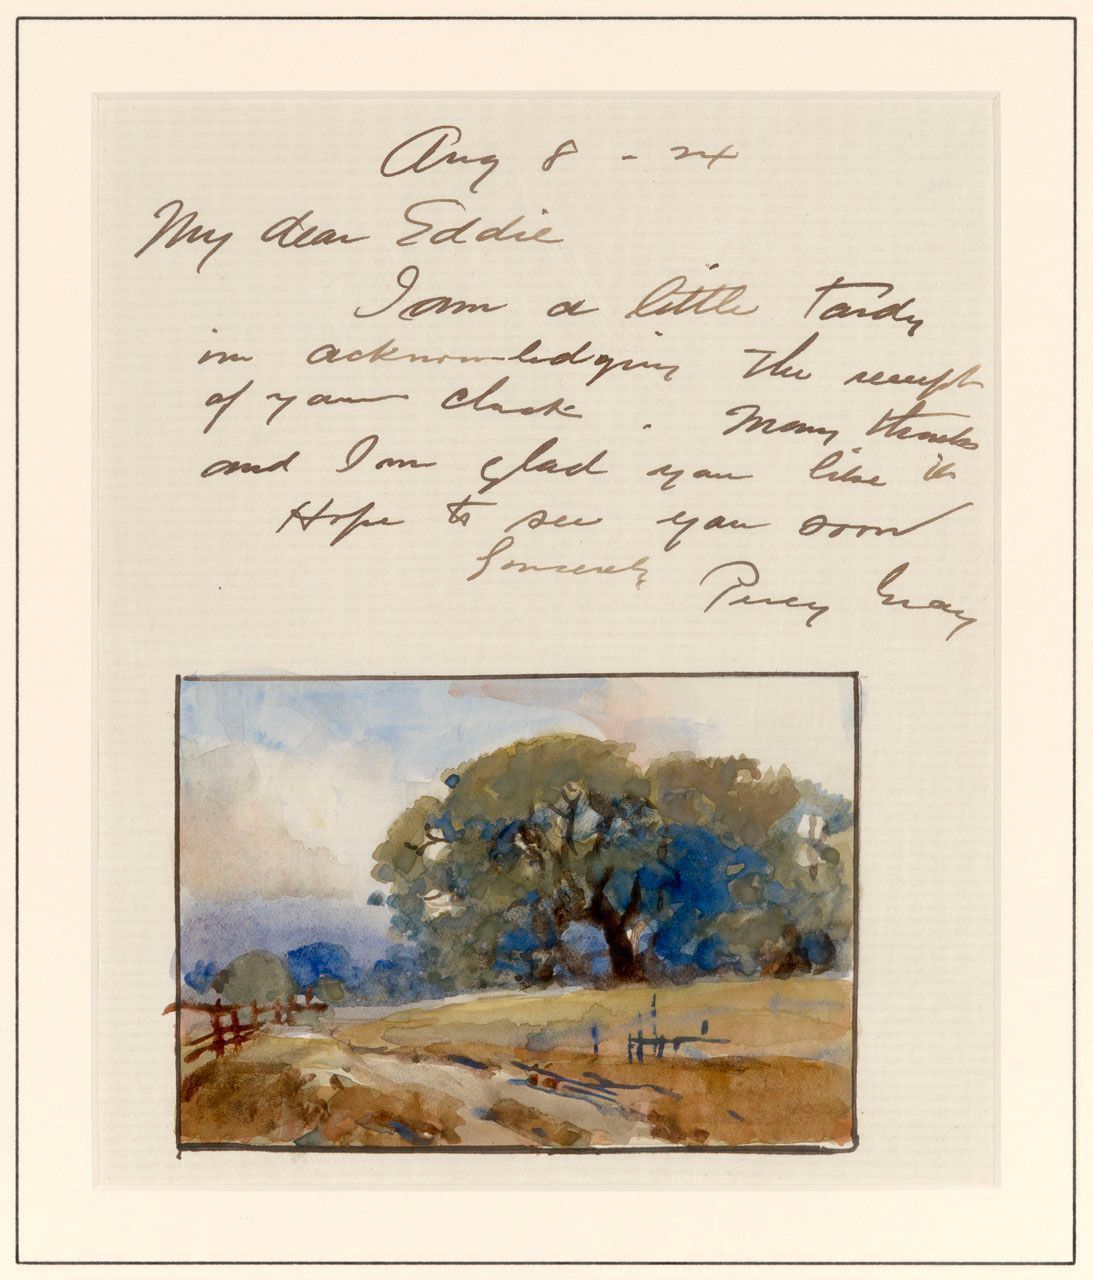 Aug 8 - 24
My dear Eddie
I am a little tardy
in acknowledging the receipt
of your check. Many thanks
and I am glad you like it
Hope to see you soon
Sincerely Percy Gray